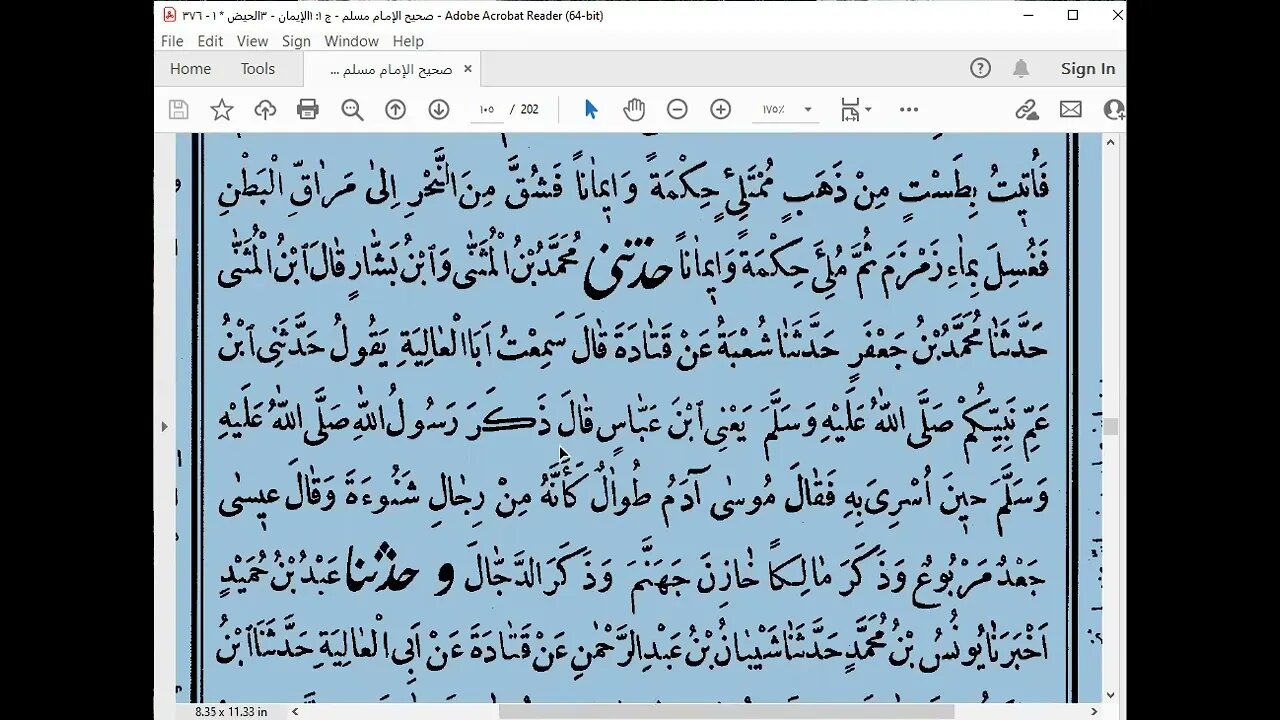 صحيح الإمام مسلم - ج ١: ١الإيمان - ٣الحيض * ١ - ٣٧٦ - Adobe Acrobat Reader (64-bit)
File Edit View Sign Window Help
Home Tools صحيح الإمام مسلم ... × Sign In
١٠٥ / 202 ١٧٥٪
فَأُتِيتُ بِطَسْتٍ مِنْ ذَهَبٍ مُمْتَلِئٍ حِكْمَةً وَإِيمَاناً فَشُقَّ مِنَ النَّحْرِ إِلىٰ مَرَاقِّ الْبَطْنِ
فَغُسِلَ بِمَاءِ زَمْزَمَ ثُمَّ مُلِئَ حِكْمَةً وَإِيمَاناً حدثني مُحَمَّدُ بْنُ الْمُثَنّٰى وَابْنُ بَشَّارٍ قٰالَ ابْنُ الْمُثَنّٰى
حَدَّثَنَا مُحَمَّدُ بْنُ جَعْفَرٍ حَدَّثَنٰا شُعْبَةُ عَنْ قَتٰادَةَ قٰالَ سَمِعْتُ اَبَا الْعٰالِيَةِ يَقُولُ حَدَّثَنِى ابْنُ
عَمِّ نَبِيِّكُمْ صَلَّى اللّٰهُ عَلَيْهِ وَسَلَّمَ يَعْنِى ابْنَ عَبّٰاسٍ قٰالَ ذَكَرَ رَسُولُ اللّٰهِ صَلَّى اللّٰهُ عَلَيْهِ
وَسَلَّمَ حِينَ اُسْرِىَ بِهِ فَقٰالَ مُوسٰى آدَمُ طُوٰالٌ كَأَنَّهُ مِنْ رِجٰالِ شَنُوءَةَ وَقٰالَ عِيسٰى
جَعْدٌ مَرْبُوعٌ وَذَكَرَ مٰالِكاً خٰازِنَ جَهَنَّمَ وَذَكَرَ الدَّجّٰالَ و حدثنا عَبْدُ بْنُ حُمَيْدٍ
اَخْبَرَنٰا يُونُسُ بْنُ مُحَمَّدٍ حَدَّثَنٰا شَيْبٰانُ بْنُ عَبْدِ الرَّحْمٰنِ عَنْ قَتٰادَةَ عَنْ اَبِى الْعٰالِيَةِ حَدَّثَنَا ابْنُ
8.35 x 11.33 in